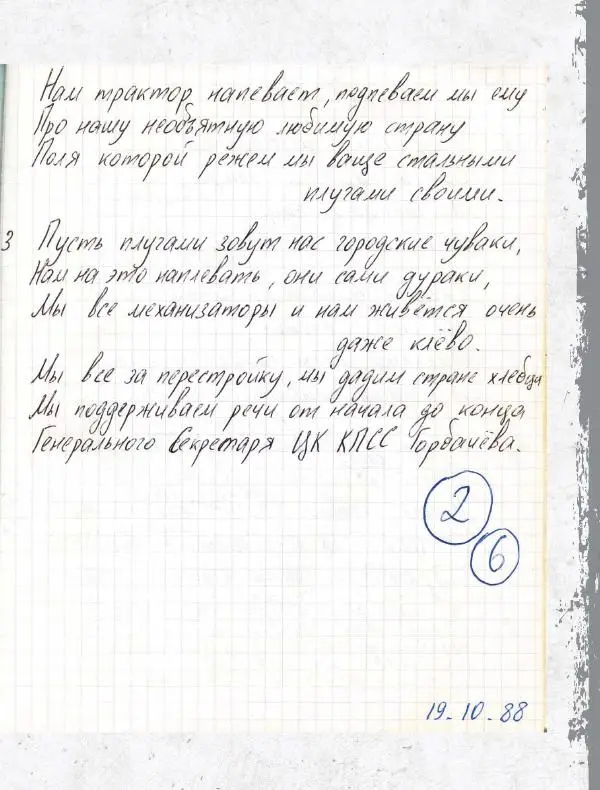 Нам трактор напевает, подпеваем мы ему
Про нашу необъятную любимую страну
Поля которой режем мы ваще стальными
плугами своими.
3 Пусть плугами зовут нас городские чуваки,
Нам на это наплевать, они сами дураки,
Мы все механизаторы и нам живётся очень
даже клёво.
Мы все за перестройку, мы дадим стране хлебца
Мы поддерживаем речи от начала до конца
Генерального Секретаря ЦК КПСС Горбачёва.
2
6
19-10-88